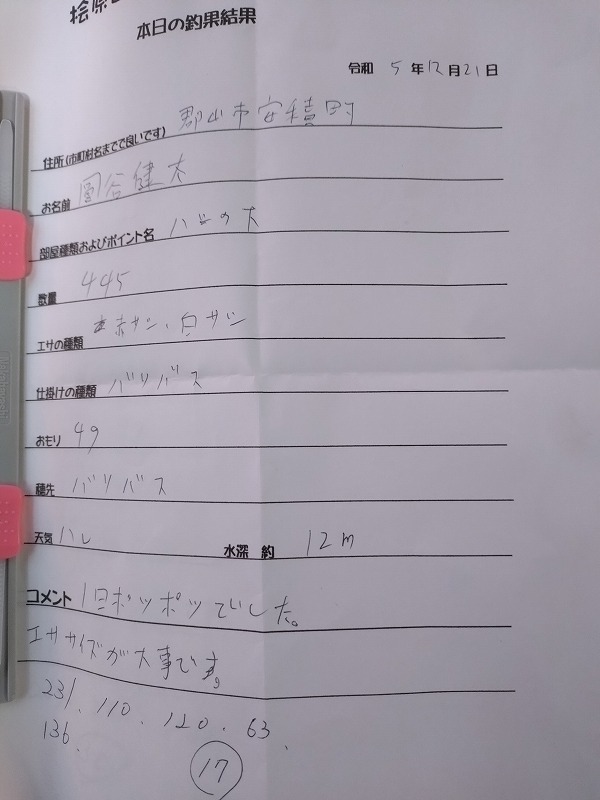 桧原
本日の釣果結果
令和 5 年 12 月 21 日
住所(市町村名までで良いです) 郡山市安積町
お名前 圓谷健太
部屋種類およびポイント名
数量 445
エサの種類 赤サシ、白サシ
仕掛けの種類 バリバス
おもり 4g
穂先 バリバス
天気 ハレ 水深 約 12m
コメント 1日ポツポツでした。
エササイズが大事です。
231、110、120、63
136、
17